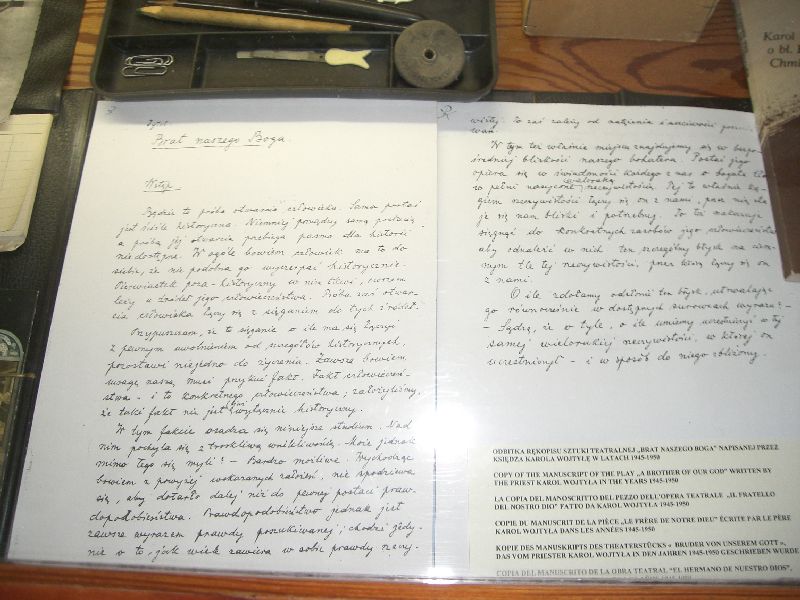 Brat naszego Boga.
Wstęp.
Będzie to próba otwarcia człowieka. Sama postać
jest ściśle historyczna. Niemniej pomiędzy samą postacią,
a próbą jej otwarcia przebiega pasmo dla historii
niedostępne. W ogóle bowiem człowiek ma to do
siebie, że nie podobna go wyczerpać historycznie.
Pierwiastek poza-historyczny w nim tkwi, owszem
leży u źródeł jego człowieczeństwa. Próba zaś otwar-
cia człowieka łączy się z sięganiem do tych źródeł.
Przypuszczam, że to sięganie o ile ma się łączyć
z pewnym uwolnieniem od szczegółów historycznych,
pozostawi niejedno do życzenia. Zawsze bowiem
uwagę naszą musi przykuć fakt. Fakt człowieczeń-
stwa - i to konkretnego człowieczeństwa; założyliśmy,
że taki fakt nie jest wyłącznie historyczny.
W tym fakcie osadza się niniejsze studium. Nad
nim pochyla się z troskliwą wnikliwością. Może jednak
mimo tego się myli? - Bardzo możliwe. Wychodząc
bowiem z powyżej wskazanych założeń, nie spodziewa
się, aby dotarło dalej niż do pewnej postaci praw-
dopodobieństwa. Prawdopodobieństwo jednak jest
zawsze wyrazem prawdy poszukiwanej; chodzi jedy-
nie o to, jak wiele zawiera w sobie prawdy rzeczy-
wistej. To zaś zależy od natężenia i uczciwości poszuki-
wań.
W tym też właśnie miejscu znajdujemy się w bezpo-
średniej bliskości naszego bohatera. Postać jego
opiera się w świadomości każdego z nas o bogate tło
w pełni nasycone wieloraką rzeczywistością. Tej to właśnie
rzeczywistości łączy się on z nami, przez nią sta-
je się nam bliski i potrzebny. To też nakazuje
sięgnąć do konkretnych zasobów jego człowieczeństwa
aby odnaleźć w nich ten szczególny błysk na ciem-
nym tle tej rzeczywistości, przez którą łączy się on
z nami.
O ile zdołamy odsłonić ten błysk, utrwalając
go równocześnie w dostępnych surowcach wyrazu? -
- Sądzę, że o tyle, o ile umiemy uczestniczyć w tej
samej wielorakiej rzeczywistości, w której on
uczestniczył - i w sposób do niego zbliżony.
Karol
o bł.
Chmi
ODBITKA RĘKOPISU SZTUKI TEATRALNEJ „BRAT NASZEGO BOGA" NAPISANEJ PRZEZ
KSIĘDZA KAROLA WOJTYŁĘ W LATACH 1945-1950
COPY OF THE MANUSCRIPT OF THE PLAY „A BROTHER OF OUR GOD" WRITTEN BY
THE PRIEST KAROL WOJTYŁA IN THE YEARS 1945-1950
LA COPIA DEL MANOSCRITTO DEL PEZZO DELL'OPERA TEATRALE „IL FRATELLO
DEL NOSTRO DIO" FATTO DA KAROL WOJTYŁA 1945-1950
COPIE DU MANUSCRIT DE LA PIÈCE „LE FRÈRE DE NOTRE DIEU" ÉCRITE PAR LE PÈRE
KAROL WOJTYŁA DANS LES ANNÉES 1945-1950
KOPIE DES MANUSKRIPTS DES THEATERSTÜCKS « BRUDER VON UNSEREM GOTT »,
DAS VOM PRIESTER KAROL WOJTYŁA IN DEN JAHREN 1945-1950 GESCHRIEBEN WURDE
COPIA DEL MANUSCRITO DE LA OBRA TEATRAL "EL HERMANO DE NUESTRO DIOS",